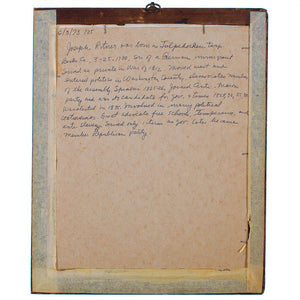 6/3/93 725
Joseph Ritner was born in Tulpehocken Twp.
Berks Co., 3-25-1780, son of a German immigrant
Served as private in War of 1812. Moved west and
entered politics in Washington County. Democratic Member
of the Assembly Speaker 1825-26, joined Anti-Mason
party and was its candidate for gov. 4 times
Was elected in 1835. Involved in many political
Great advocate free schools, temperance, and
anti slavery. Served only 1 term as gov. Later became
Member Republican party.